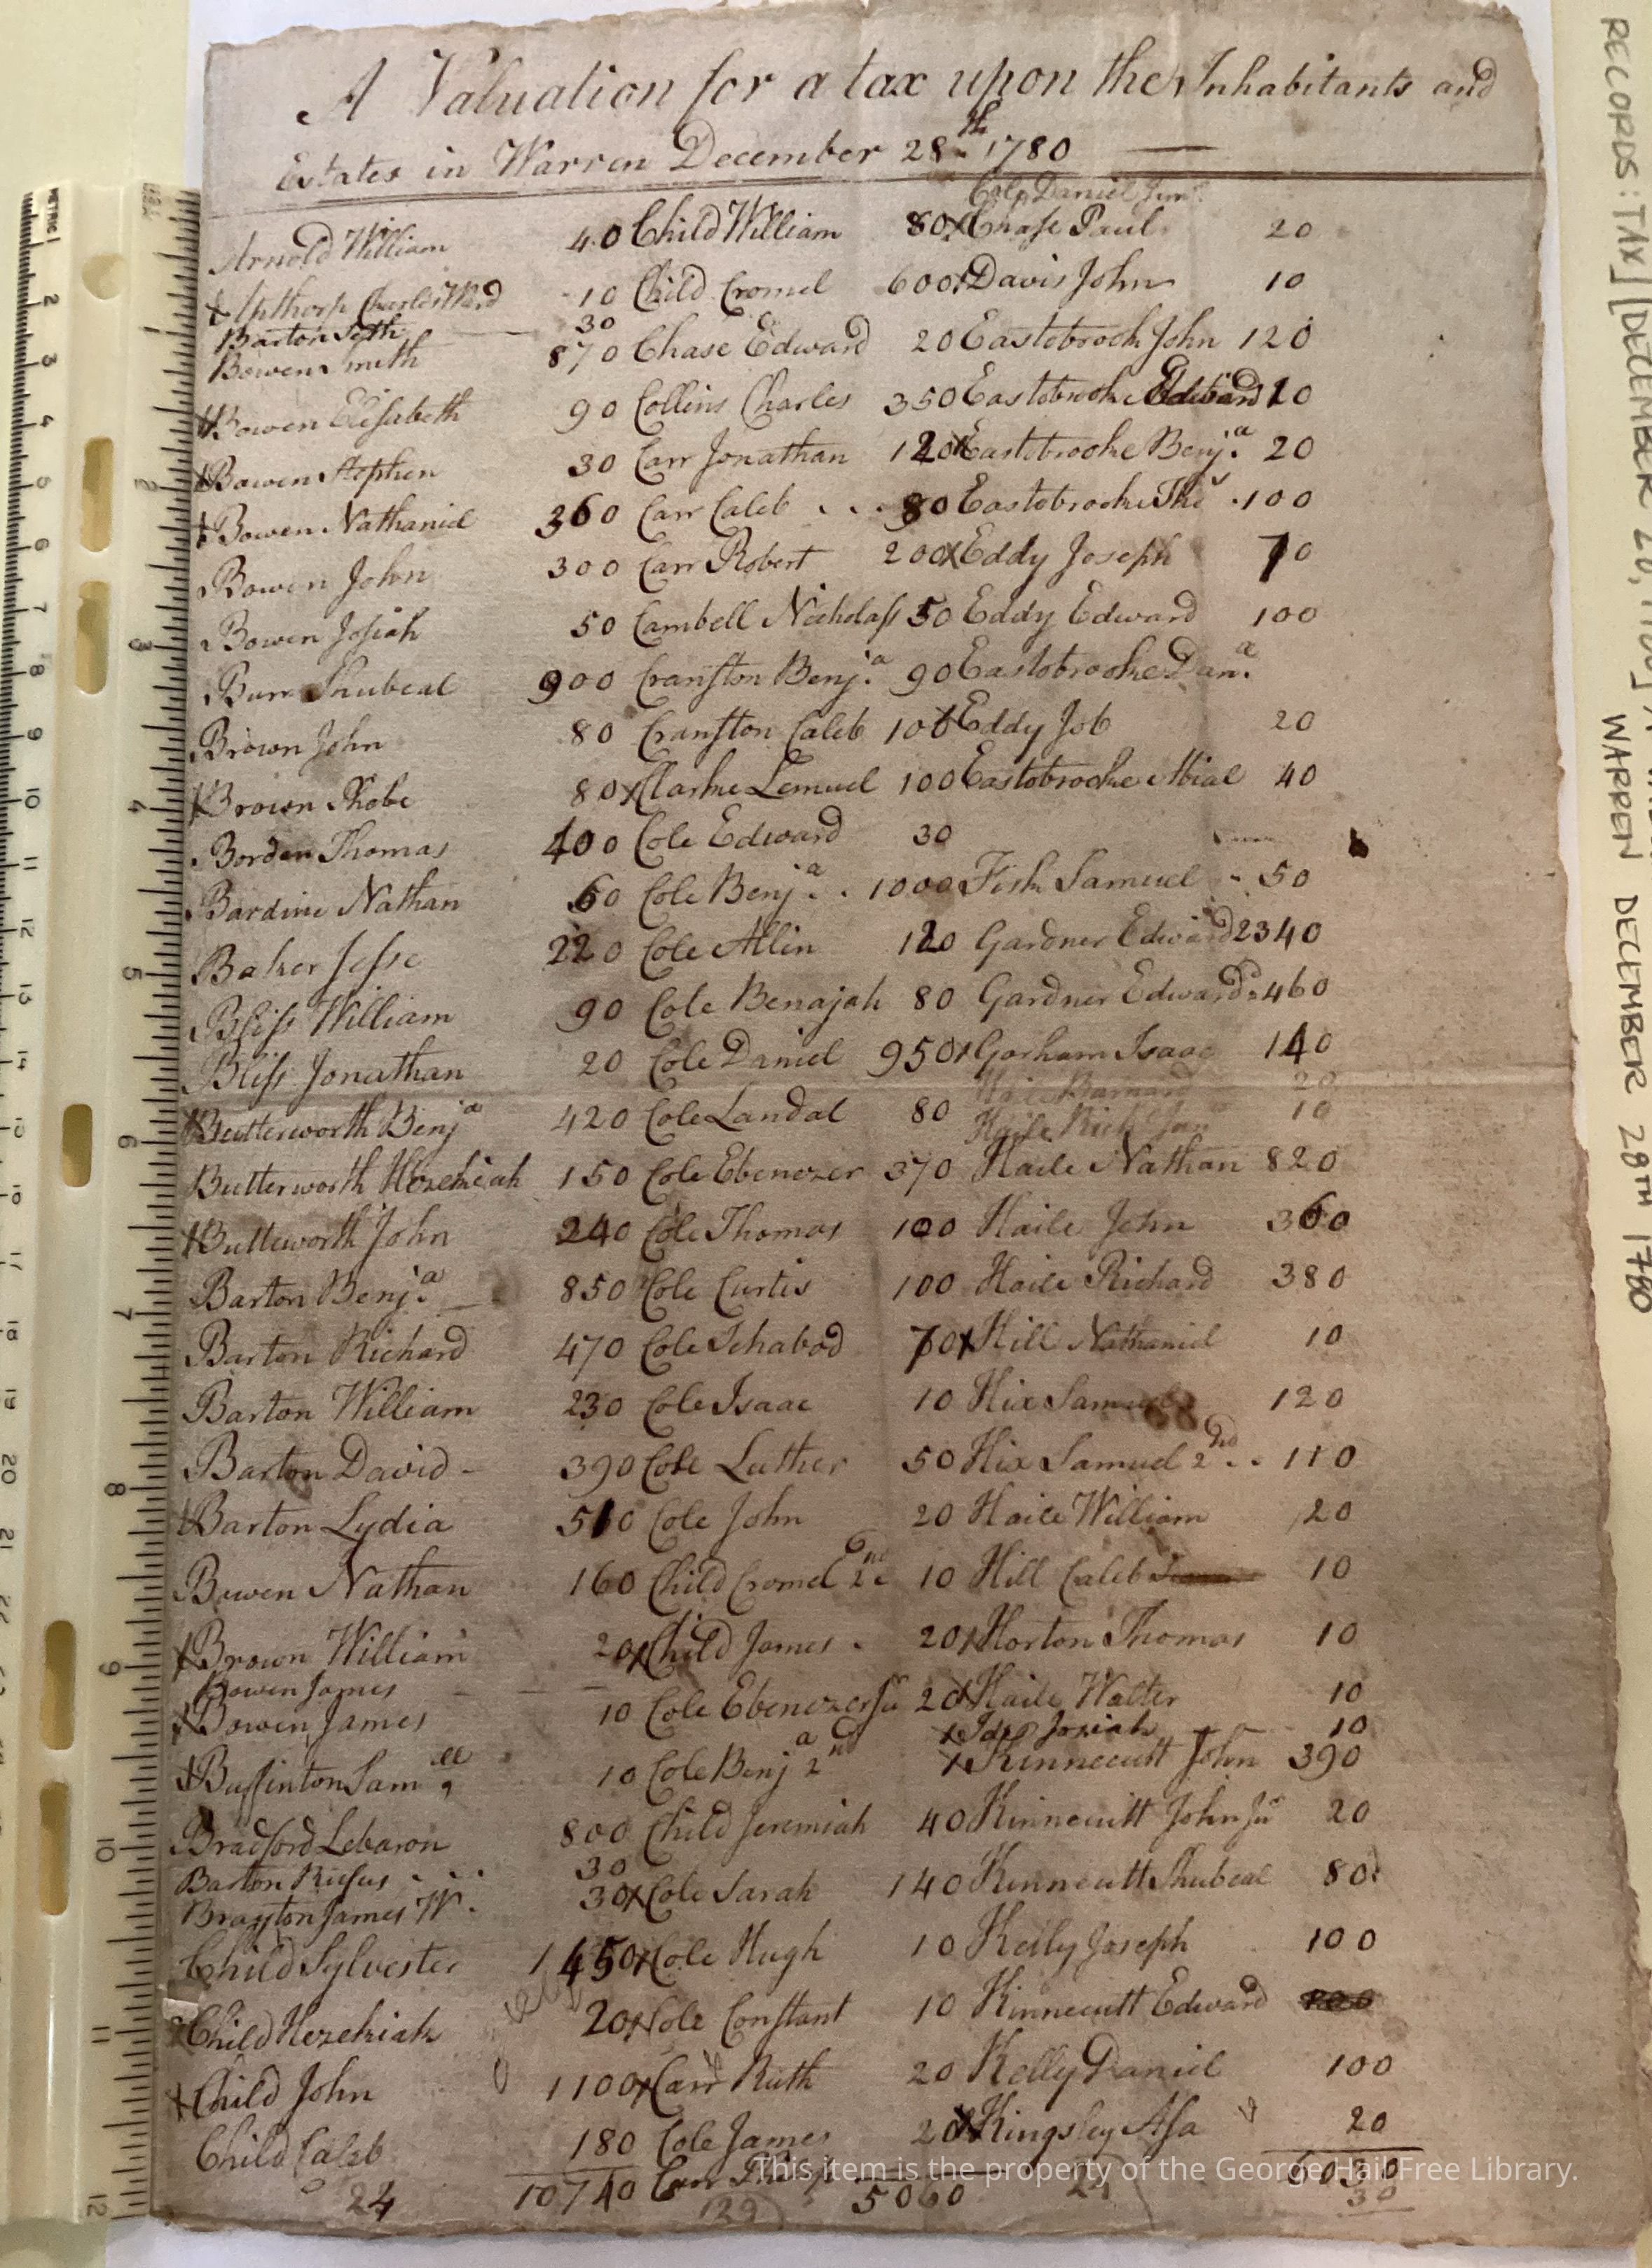 A Valuation for a tax upon the Inhabitants and
Estates in Warren December 28th 1780
Cole Daniel Junr
Arnold William 40 Child William 80 x Chase Paul 20
Apthorp Charles Wd 10 Child Cromel 600 x Davis John 10
Barton Seth 30
Bowen Smith 870 Chase Edward 20 Eastobrook John 120
Bowen Elisabeth 90 Collins Charles 350 Eastobrooke Edward 10
Bowen Stephen 30 Carr Jonathan 120 x Eastobrooke Benja 20
Bowen Nathaniel 360 Carr Caleb 80 Eastobrooke 100
Bowen John 300 Carr Robert 200 x Eddy Joseph 70
Bowen Josiah 50 Cambell Nicholass 50 Eddy Edward 100
Burr Shubeal 900 Cranston Benja 90 Eastobrooke
Brown John 80 Cranston Caleb 100 x Eddy Job 20
Brown Phobe 80 x Clarke Lemuel 100 Eastobrooke Abial 40
Borden Thomas 400 Cole Edward 30
Bardine Nathan 60 Cole Benja 1000 Fish Samuel 50
Baker Jesse 220 Cole Allin 120 Gardner Edward 2340
Bliss William 90 Cole Benajah 80 Gardner Edward 460
Bliss Jonathan 20 Cole Daniel 950 x Gorham Isaac 140
Barnard 20
Haile Richd Jun 10
Butterworth Benja 420 Cole Landal 80
Butterworth Hezekiah 150 Cole Ebenezer 370 Haile Nathan 820
Butteworth John 240 Cole Thomas 100 Haile John 360
Barton Benja 850 Cole Curtis 100 Haile Richard 380
Barton Richard 470 Cole Ichabod 70 x Hill Nathaniel 10
Barton William 230 Cole Isaac 10 Hix Samuel 120
Barton David 390 Cole Luther 50 Hix Samuel 2nd 110
Barton Lydia 510 Cole John 20 Haile William 20
Bowen Nathan 160 Child Cromel 2nd 10 Hill Caleb 10
Brown William 20 x Child James 20 x Horton Thomas 10
Bowen James
Bowen James 10 Cole Ebenezer Ju 20 x Haile Walter 10
x Ide Josiah 10
Buffinton Samll 10 Cole Benja 2nd x Kinnecutt John 390
Bradford Lebaron 800 Child Jeremiah 40 Kinnecutt John Ju 20
Barton Rufus 30
Brayton James W. 30 x Cole Sarah 140 Kinnecutt Shubeal 80
Child Sylvester 1450 x Cole Hugh 10 Kelly Joseph 100
Child Hezekiah 20 x Cole Constant 10 Kinnecutt Edward
Child John 1100 x Carr Ruth 20 Kelly Daniel 100
Child Caleb 180 Cole James 20 x Kingsley Asa 20
10740 Carr Philip 5060
24 29
30
RECORDS: TAX] [DECEMBER 28, 1780]
WARREN DECEMBER 28TH 1780
METRIC 1
2 3 4 5 6 7 8 9 10 11 12 13 14 15 16 17 18 19 20 21
2 3 4 5 6 7 8 9 10 11 12
This item is the property of the George Hail Free Library.